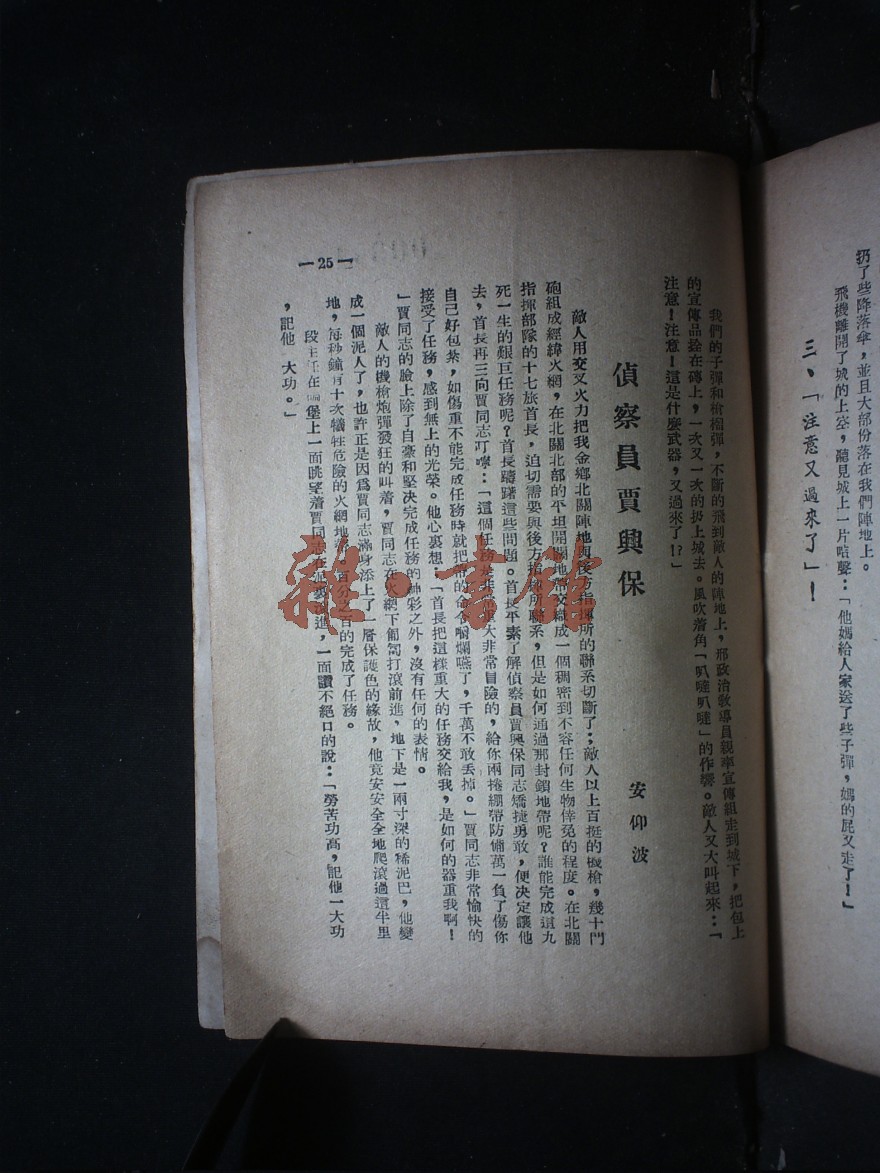 扔了些降落傘，並且大部份落在我們陣地上。
飛機離開了城的上空，聽見城上一片喧聲：「他媽給人家送了些子彈，媽的屁又走了！」
三、「注意又過來了」！
我們的子彈和槍榴彈，不斷的飛到敵人的陣地上，邢政治敎導員親率宣傳組走到城下，把包上
的宣傳品拴在磚上，一次又一次的扔上城去。風吹着角「叭噠叭噠」的作響。敵人又大叫起來：「
注意！注意！這是什麽武器，又過來了！？」
偵察員賈興保
安仰波
敵人用交叉火力把我金鄉北關陣地與後方指揮所的聯系切斷了；敵人以上百挺的機槍，幾十門
砲組成經緯火網，在北關北部的平坦開闊地帶交織成一個稠密到不容任何生物倖免的程度。在北關
指揮部隊的十七旅首長，迫切需要與後方指揮所聯系，但是如何通過那封鎖地帶呢？誰能完成這九
死一生的艱巨任務呢？首長躊躇這些問題。首長平素了解偵察員賈興保同志矯捷勇敢，便決定讓他
去，首長再三向賈同志叮嚀：「這個任務是非常重大非常冒險的，給你兩捲綳帶防備萬一負了傷你
自己好包紮，如傷重不能完成任務時就把帶的命令嚼爛嚥了，千萬不敢丢掉。」賈同志非常愉快的
接受了任務，感到無上的光榮。他心裏想：「首長把這樣重大的任務交給我，是如何的器重我啊！
」賈同志的臉上除了自豪和堅决完成任務的神彩之外，沒有任何的表情。
敵人的機槍炮彈發狂的叫着，賈同志在火網下匍匐打滾前進，地下是一兩寸深的稀泥巴，他變
成一個泥人了，也許正是因爲賈同志滿身添上了一層保護色的緣故，他竟安安全全地爬滾過這半里
地，每秒鐘有十次犧牲危險的火網地帶，百分之百的完成了任務。
段主任在堡上一面眺望着賈同志在泥裏滾進，一面讚不絕口的說：「勞苦功高，記他一大功
，記他 大功。」
—25—
雜·書館